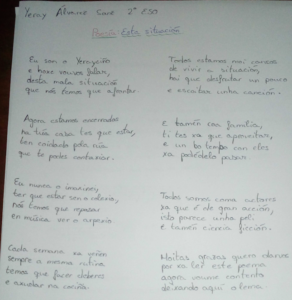 Yeray Álvarez 2º ESO
Poesía: Esta situación
Eu son o Yerayciño
e hoxe vouvos falar,
desta mala situación
que nós temos que afrontar.
Agora estamos encerrados
na túa casa tes que estar,
ten coidado pola rúa
que te podes contaxiar.
Eu nunca o imaxinei,
ter que estar sen o colexio,
nós temos que repasar
en música ver o arpexio
Cada semana na
sempre a mesma rutina
temos que facer deberes
e axudar na cociña.
Todos estamos moi cansos
de vivir a situación,
hai que disfrutar un pouco
e escoitar unha canción.
E tamén coa familia,
ti tes xa que aproveitar,
e un bo tempo con eles
xa poderedes pasar.
Todos somos como actores
xa que é de gran acción,
isto parece unha peli
e tamén ciencia ficción.
Moitas grazas quero darvos
por eu ler este poema
agora voume contando
deixando aquí o lema.